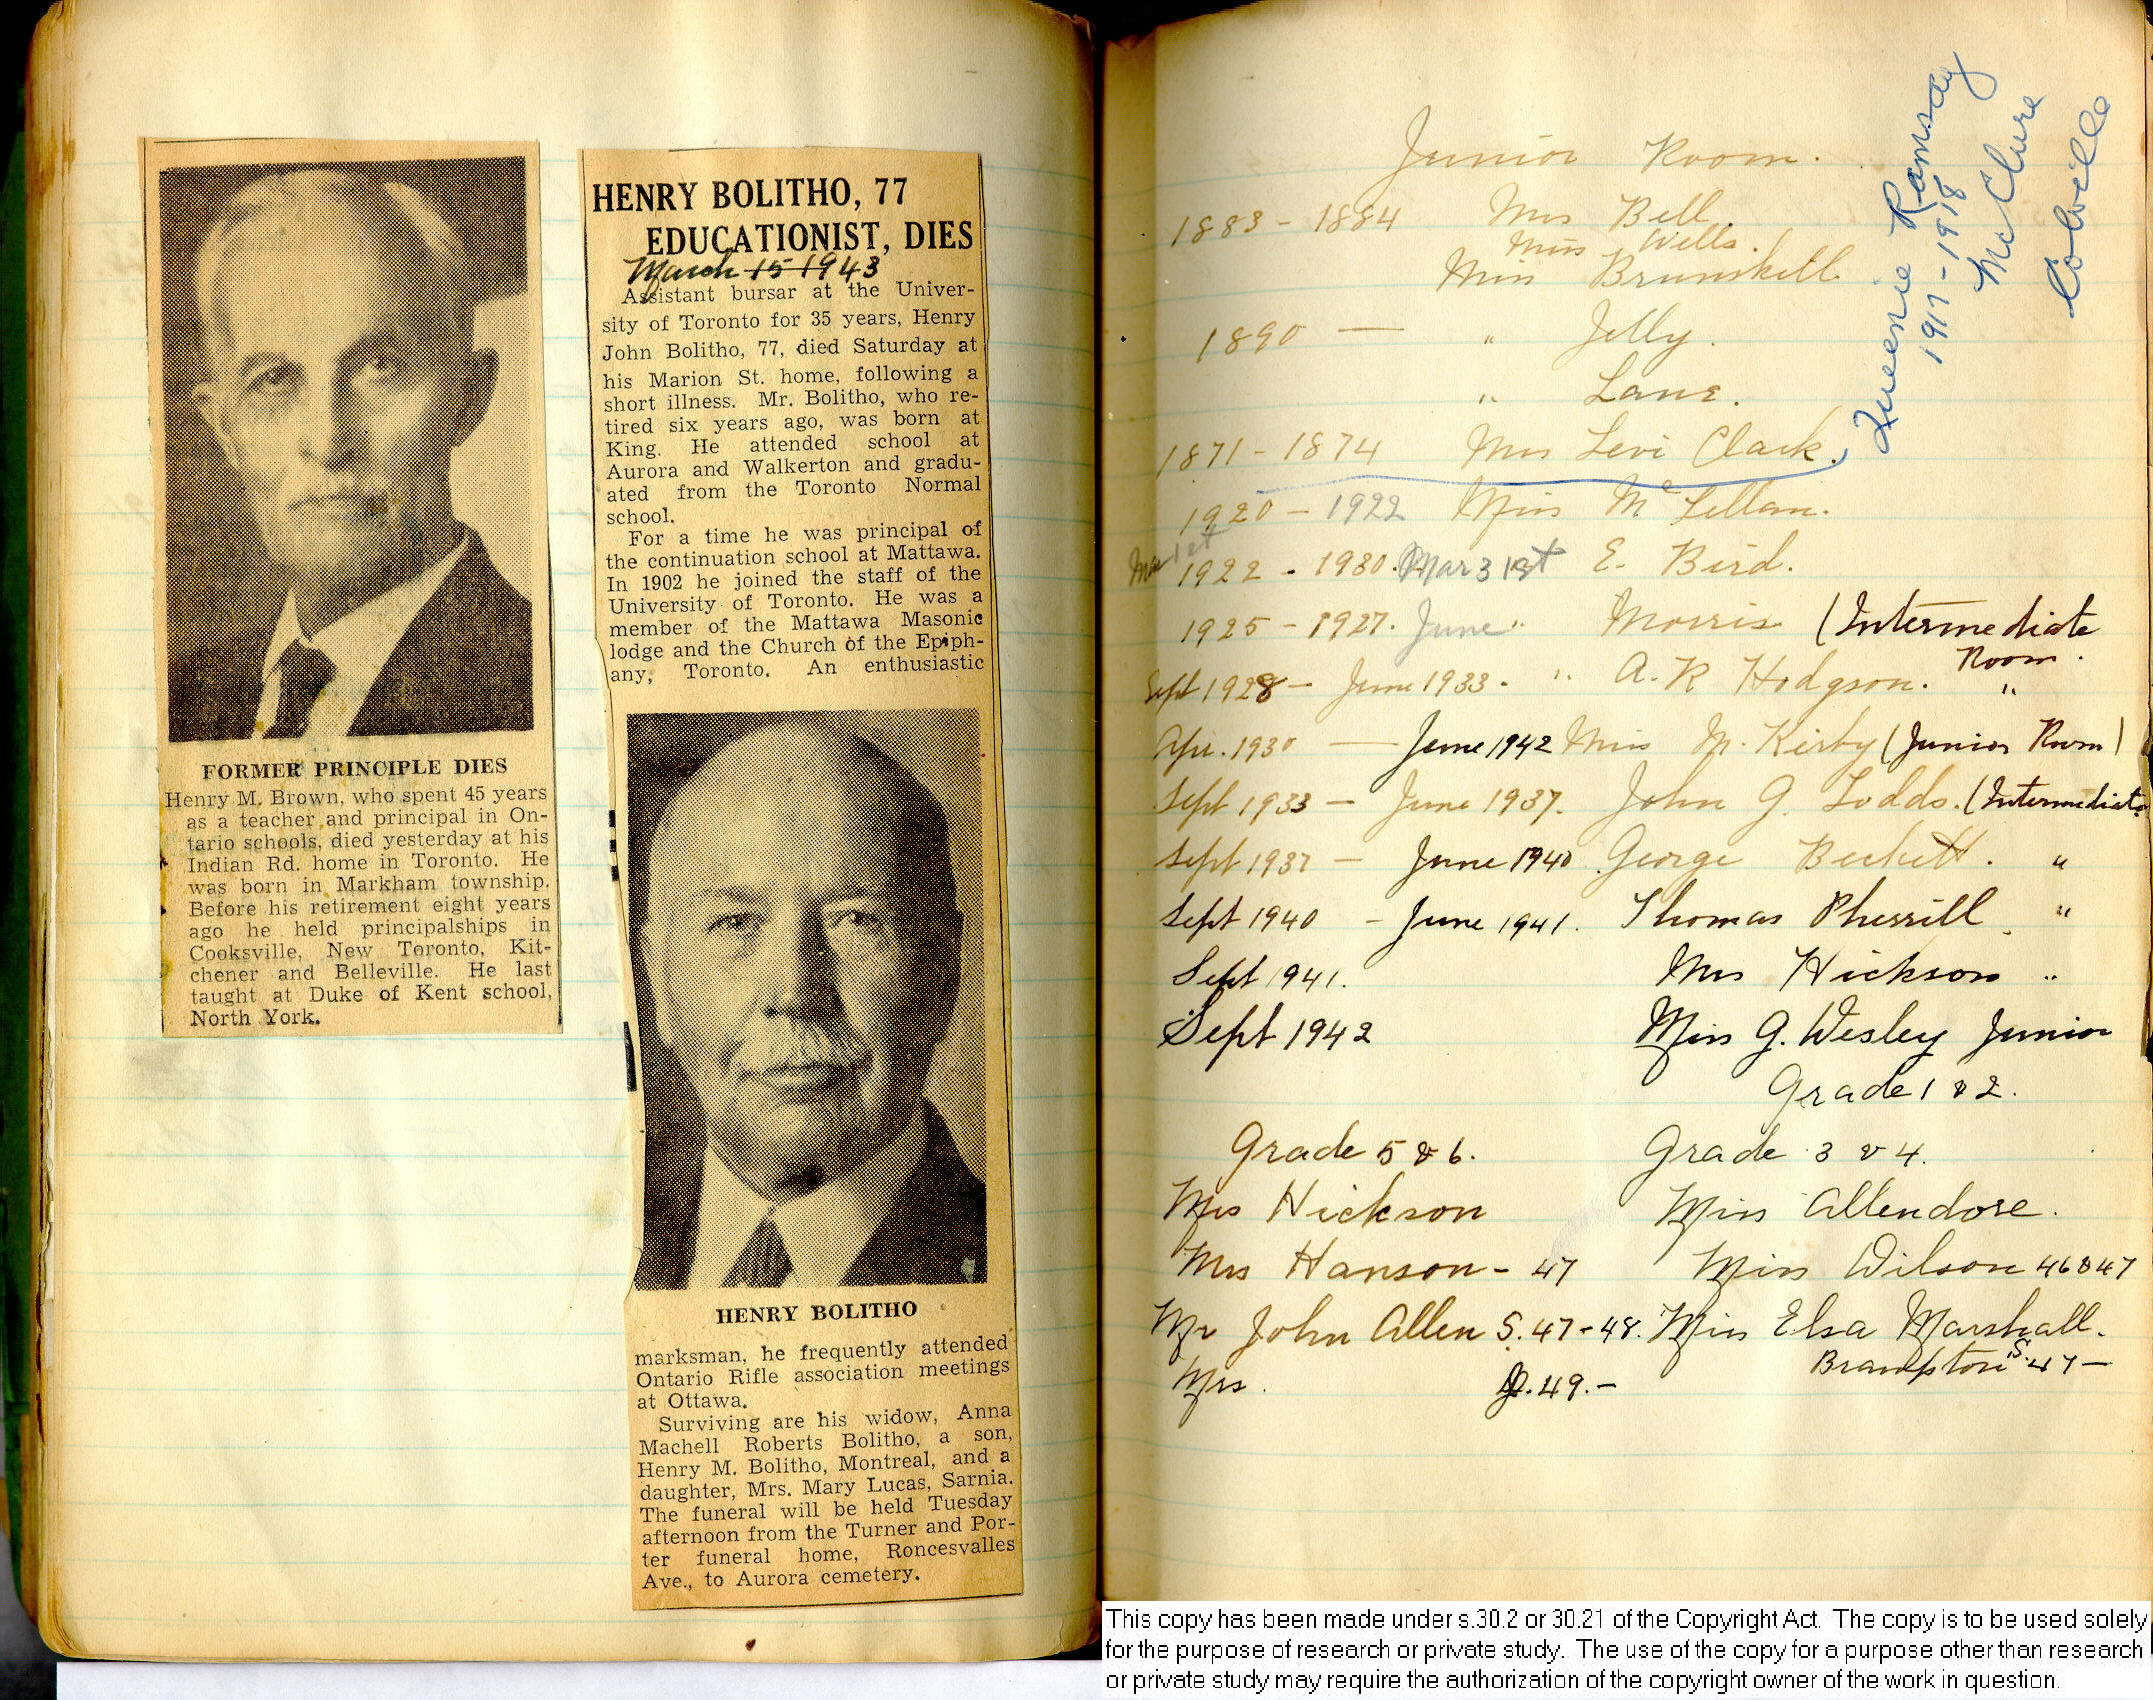 FORMER PRINCIPLE DIES
Henry M. Brown, who spent 45 years
as a teacher and principal in On-
tario schools, died yesterday at his
Indian Rd. home in Toronto. He
was born in Markham township.
Before his retirement eight years
ago he held principalships in
Cooksville, New Toronto, Kit-
chener and Belleville. He last
taught at Duke of Kent school,
North York.
HENRY BOLITHO, 77
EDUCATIONIST, DIES
March 15 1943
Assistant bursar at the Univer-
sity of Toronto for 35 years, Henry
John Bolitho, 77, died Saturday at
his Marion St. home, following a
short illness. Mr. Bolitho, who re-
tired six years ago, was born at
King. He attended school at
Aurora and Walkerton and gradu-
ated from the Toronto Normal
school.
For a time he was principal of
the continuation school at Mattawa.
In 1902 he joined the staff of the
University of Toronto. He was a
member of the Mattawa Masonic
lodge and the Church of the Epiph-
any, Toronto. An enthusiastic
HENRY BOLITHO
marksman, he frequently attended
Ontario Rifle association meetings
at Ottawa.
Surviving are his widow, Anna
Machell Roberts Bolitho, a son,
Henry M. Bolitho, Montreal, and a
daughter, Mrs. Mary Lucas, Sarnia.
The funeral will be held Tuesday
afternoon from the Turner and Por-
ter funeral home, Roncesvalles
Ave., to Aurora cemetery.
Junior Room.
1883 - 1884 Mrs Bell.
Miss Wells.
Miss Brunskill
1890 — " Jelly.
" Lane.
1871 - 1874 Mrs Levi Clark.
Queenie Ramsay
1917 - 1918
McClure
Colville
1920 - 1922 Miss McLellan.
1922 - 1930. Mar 31st E. Bird.
1925 - 1927. June " Morris (Intermediate
Room.
Sept 1928 - June 1933. " A. R Hodgson. "
Apr. 1930 — June 1942 Miss M. Kirby (Junior Room)
Sept 1933 - June 1937. John G. Dodds. (Intermediate
Sept 1937 - June 1940 George Beckett. "
Sept 1940 - June 1941. Thomas Pherrill. "
Sept 1941. Mrs Hickson "
Sept 1942 Miss G. Wesley Junior
Grade 1 & 2.
Grade 5 & 6. Grade 3 & 4.
Mrs Hickson Miss Allendore.
Mrs Hanson - 47 Miss Wilson 46 & 47
Mr John Allen S. 47-48. Miss Elsa Marshall.
Brampton S. 47 —
Mrs. 49. -
This copy has been made under s.30.2 or 30.21 of the Copyright Act. The copy is to be used solely
for the purpose of research or private study. The use of the copy for a purpose other than research
or private study may require the authorization of the copyright owner of the work in question.